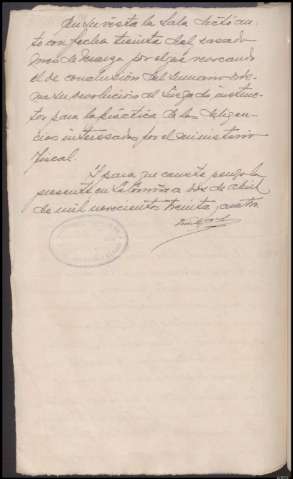 En su vista la Sala dictó au-
to con fecha treinta del pasado
mes de marzo por el que revocando
el de conclusión del sumario orde-
na su devolución al Juzgado instruc-
tor para la práctica de las diligen-
cias interesadas por el ministerio
fiscal.
Y para que conste pongo la
presente en a dos de abril
de mil novecientos treinta y cuatro